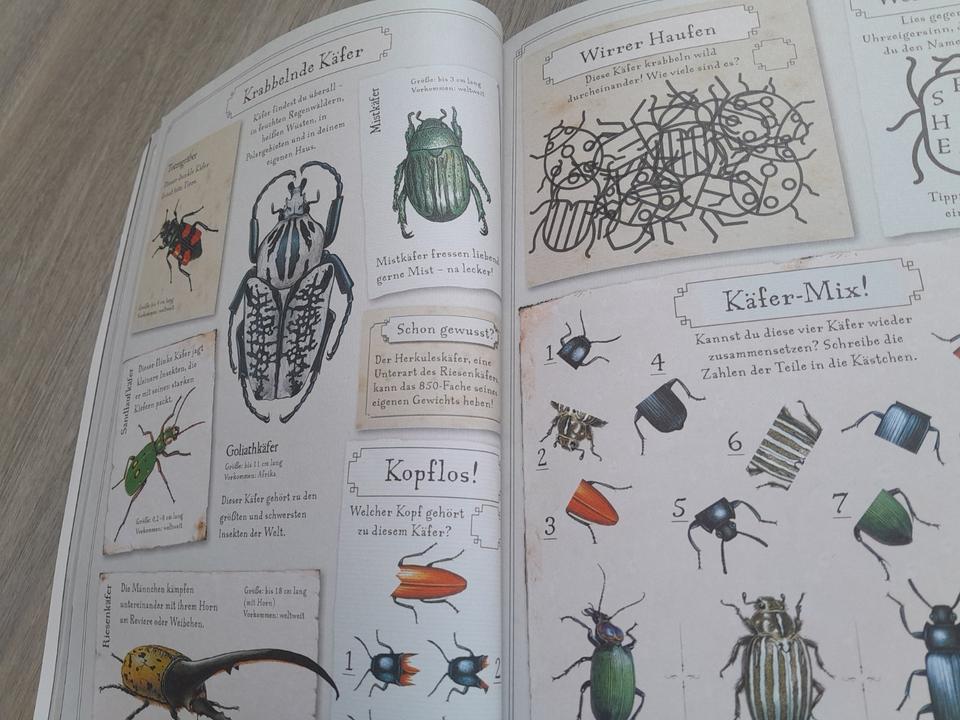 Krabbelnde Käfer
Käfer findest du überall –
in feuchten Regenwäldern,
heißen Wüsten, in
Polargebieten und in deinem
eigenen Haus.
Totengräber
Dieser dunkle Käfer
Größe: bis 4 cm lang
Vorkommen: weltweit
Mistkäfer
Größe: bis 3 cm lang
Vorkommen: weltweit
Mistkäfer fressen liebend
gerne Mist – na lecker!
Sandlaufkäfer
Dieser flinke Käfer jagt
kleinere Insekten, die
er mit seinen starken
Kiefern packt.
Größe: 0,2–8 cm lang
Vorkommen: weltweit
Goliathkäfer
Größe: bis 11 cm lang
Vorkommen: Afrika
Dieser Käfer gehört zu den
größten und schwersten
Insekten der Welt.
Schon gewusst?
Der Herkuleskäfer, eine
Unterart des Riesenkäfers,
kann das 850-Fache seines
eigenen Gewichts heben!
Riesenkäfer
Die Männchen kämpfen
untereinander mit ihrem Horn
um Reviere oder Weibchen.
Größe: bis 18 cm lang
(mit Horn)
Vorkommen: weltweit
Kopflos!
Welcher Kopf gehört
zu diesem Käfer?
1
2
Wirrer Haufen
Diese Käfer krabbeln wild
durcheinander! Wie viele sind es?
Lies gegen
Uhrzeigersinn,
du den Name
S
H
E
Tipp
ein
Käfer-Mix!
Kannst du diese vier Käfer wieder
zusammensetzen? Schreibe die
Zahlen der Teile in die Kästchen.
1
4
2
6
3
5
7